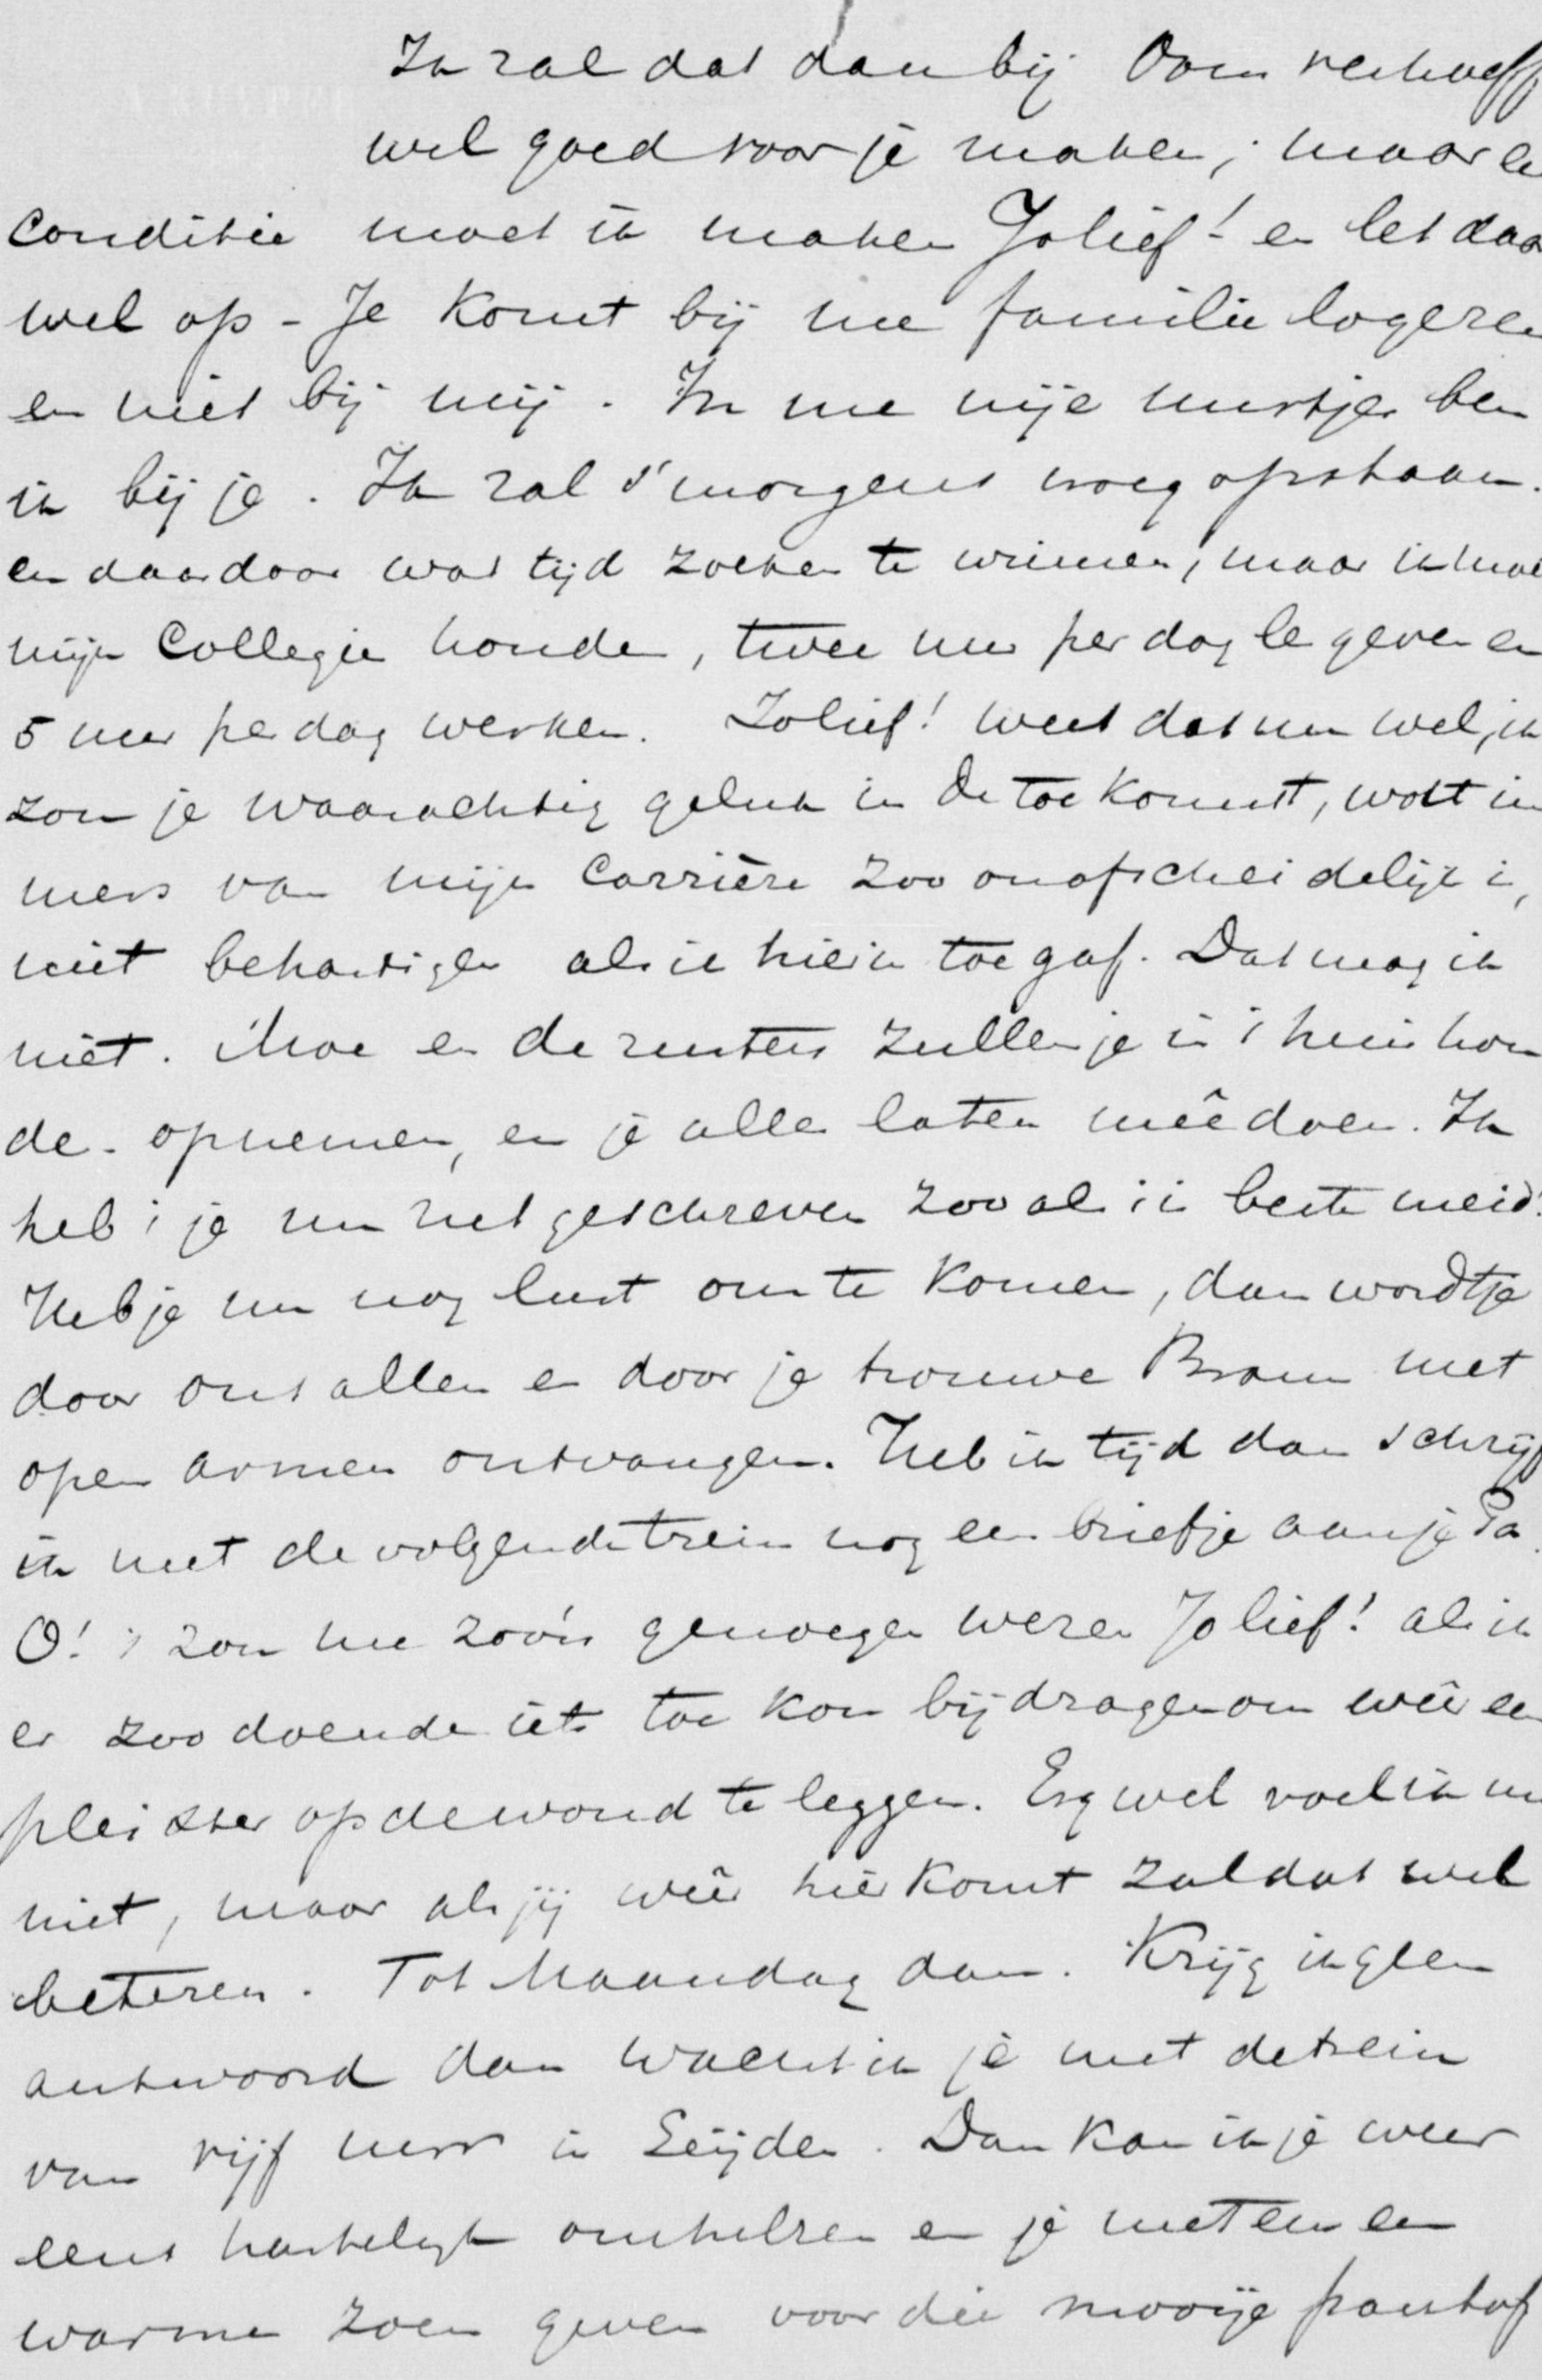 Ik zal dat dan bij Oom Verhoeff
wel goed voor je maken; maar een
conditie moet ik maken Jolief! en let daar
wel op - Je komt bij me familie logeren
en niet bij mij. In me vrije uurtjes ben
ik bij je. Ik zal s'morgens vroeg opstaan
en daardoor wat tijd zoeken te winnen, maar ik moet
mijn Collegie houden, twee uur per dag les geven en
5 uur per dag werken. Jolief! weet dat nu wel, ik
zou je waarachtig geluk in de toekomst, wat im
mers van mijn Carrière zoo onafscheidelijk is,
niet behartigen als ik hierin toegaf. Dat mag ik
niet. Moe en de zusters zullen je in 't huishou
de- opnemen, en je alles laten meêdoen. Ik
heb 't je nu net geschreven zooals 't is beste meid!
Heb je nu nog lust om te komen, dan wordt je
door ons allen en door je trouwe Bram met
open armen ontvangen. Heb ik tijd dan schrijf
ik met de volgende trein nog een briefje aan je Pa.
O! 't zou me zoo'n genoegen wezen Jo lief! als ik
er zoo doende iets toe kon bijdragen om weêr een
pleister op de wond te leggen. Erg wel voel ik me
niet, maar als jij weêr hier komt zal dat wel
beteren. Tot Maandag dan. Krijg ik geen
antwoord dan wacht ik je met de trein
van vijf uur in Leijden. Dan kan ik je weer
eens hartelijk omhelzen en je meteen een
warme zoen geven voor die mooije pantof